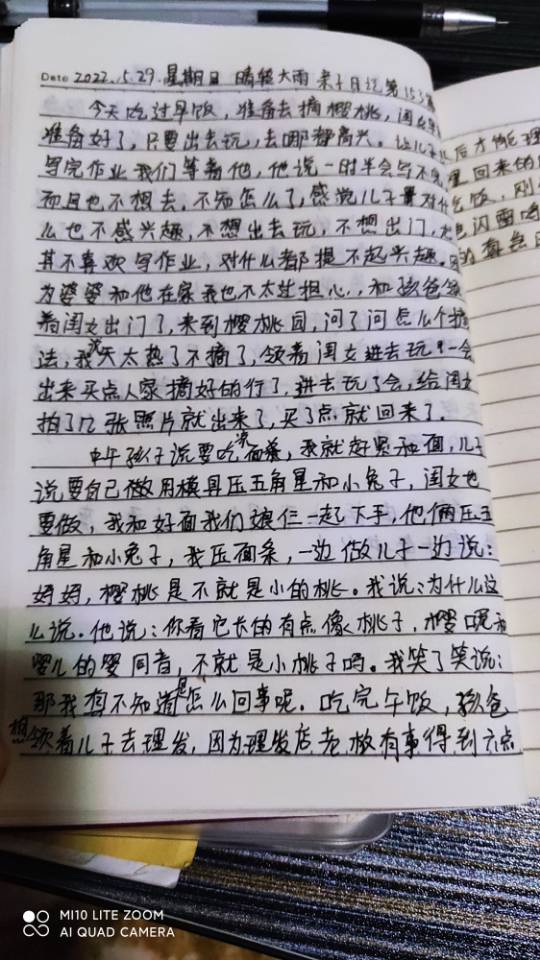 Date 2022.5.29. 星期日 晴转大雨 亲子日记第153篇
今天吃过早饭，准备去摘樱桃，闺女早
准备好了，只要出去玩，去哪都高兴。让儿子
写完作业我们等着他，他说一时半会写不完
而且也不想去，不知怎么了，感觉儿子最对什
么也不感兴趣，不想出去玩，不想出门，尤
其不喜欢写作业，对什么都提不起兴趣。因
为婆婆和他在家我也不太过担心，和孩爸领
着闺女出门了，来到樱桃园，问了问怎么个摘
法，我说天太热了不摘了，领着闺女进去玩一会
出来买点人家摘好的行了，进去玩了会，给闺女
拍了几张照片就出来了，买了点就回来了。
中午孩子说要吃凉面条，我就赶紧和面，儿子
说要自己做用模具压五角星和小兔子，闺女也
要做，我和好面我们娘仨一起下手，他俩压五
角星和小兔子，我压面条，一边做儿子一边说：
妈妈，樱桃是不就是小的桃。我说：为什么这
么说。他说：你看它长的有点像桃子，樱呢和
婴儿的婴同音，不就是小桃子吗。我笑了笑说：
那我真不知道是怎么回事呢。吃完午饭，孩爸
想领着儿子去理发，因为理发店老板有事得到六点
后才能理
里回来的
吃饭，刚
电闪雷鸣